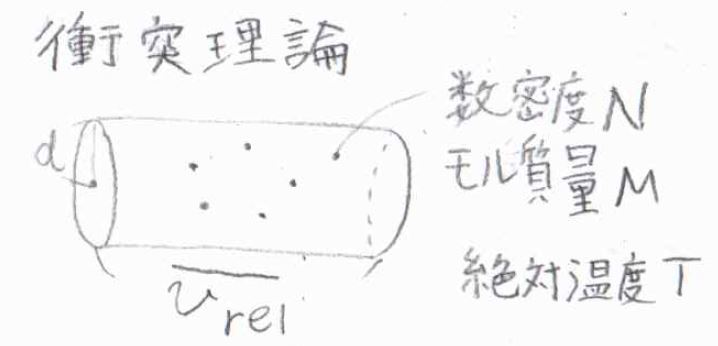 衝突理論
数密度N
d
モル質量M
絶対温度T
v_rel